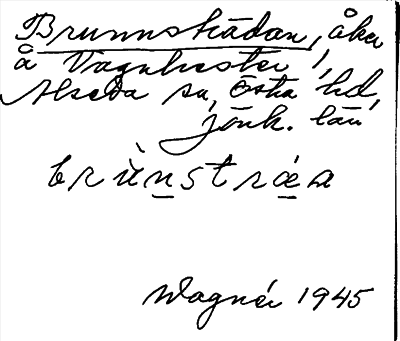 Brunnstrådan, åker
å Vagnhester 1,
Alseda sn, Östra hd,
Jönk. län
brùn̲stræ̲a
Wagnér 1945